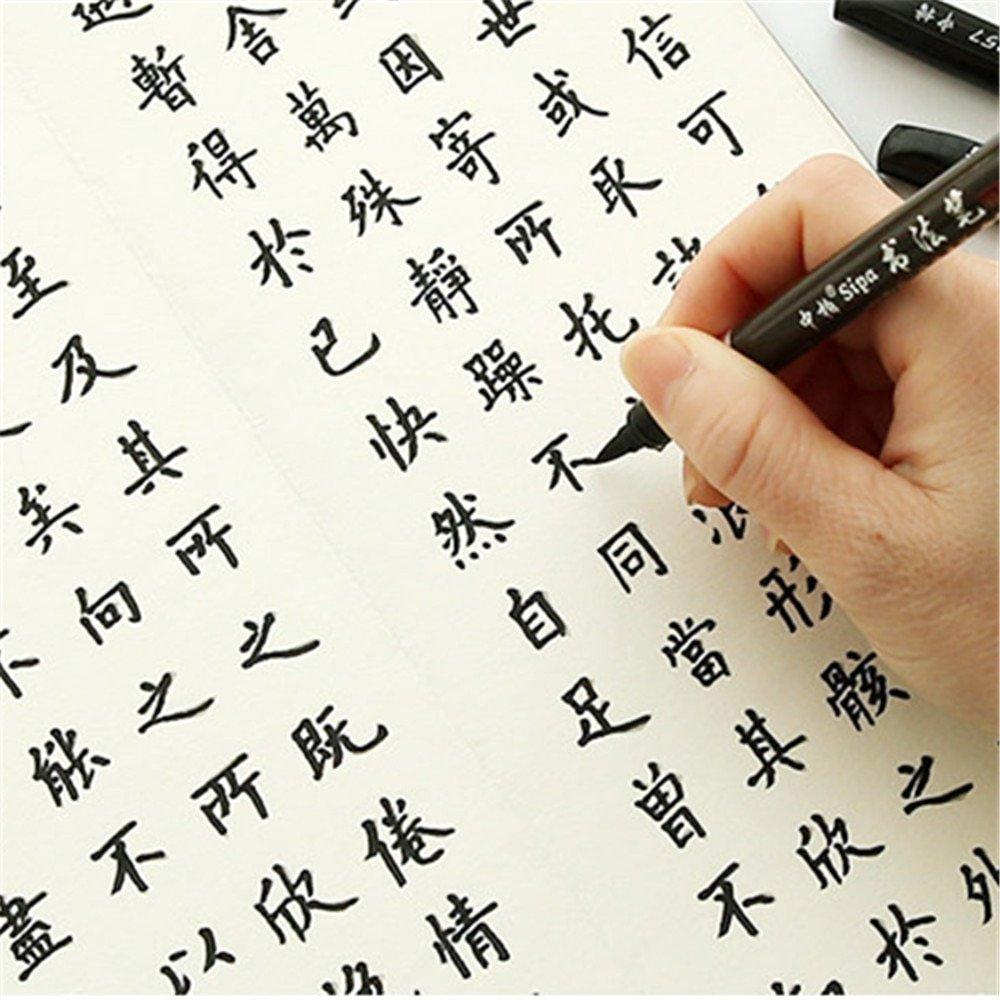 信可
世或取諸
因寄所托浪形骸之外
舍萬殊靜躁不同當其欣於
暫得於已快然自足曾不知
至及其所之既倦情
矣向之所欣
不能不以
盡
中楷® Sipa 书法笔
57 中楷